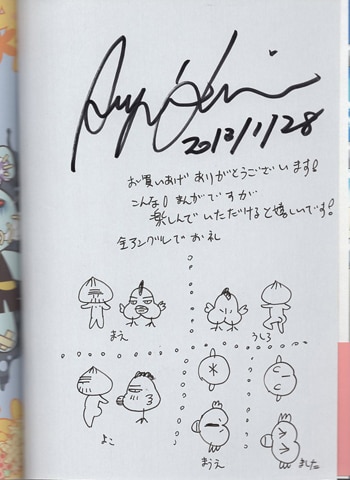 2013/11/28
お買いあげ ありがとうございます!
こんな! まんがですが
楽しんでいただけると嬉しいです!
全アングルでお礼
まえ
うしろ
よこ
まうえ
ました